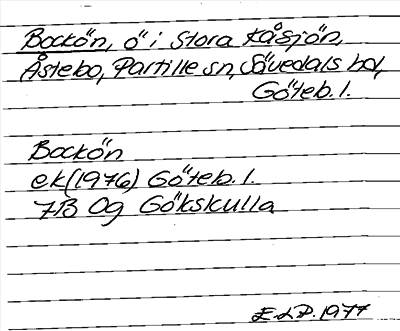 Bockön, ö i Stora Kåsjön,
Åstebo, Partille sn, Sävedals hd,
Göteb. l.
Bockön
ek(1976) Göteb. l.
7B 0g Gökskulla
E.L.P. 1977